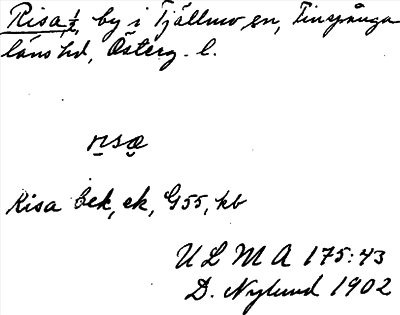 Risa ½, by i Tjällmo sn, Finspånga
läns hd, Österg. l.
risa
Risa bek, ek, G55, kb
ULMA 175:43
D. Nylund 1902